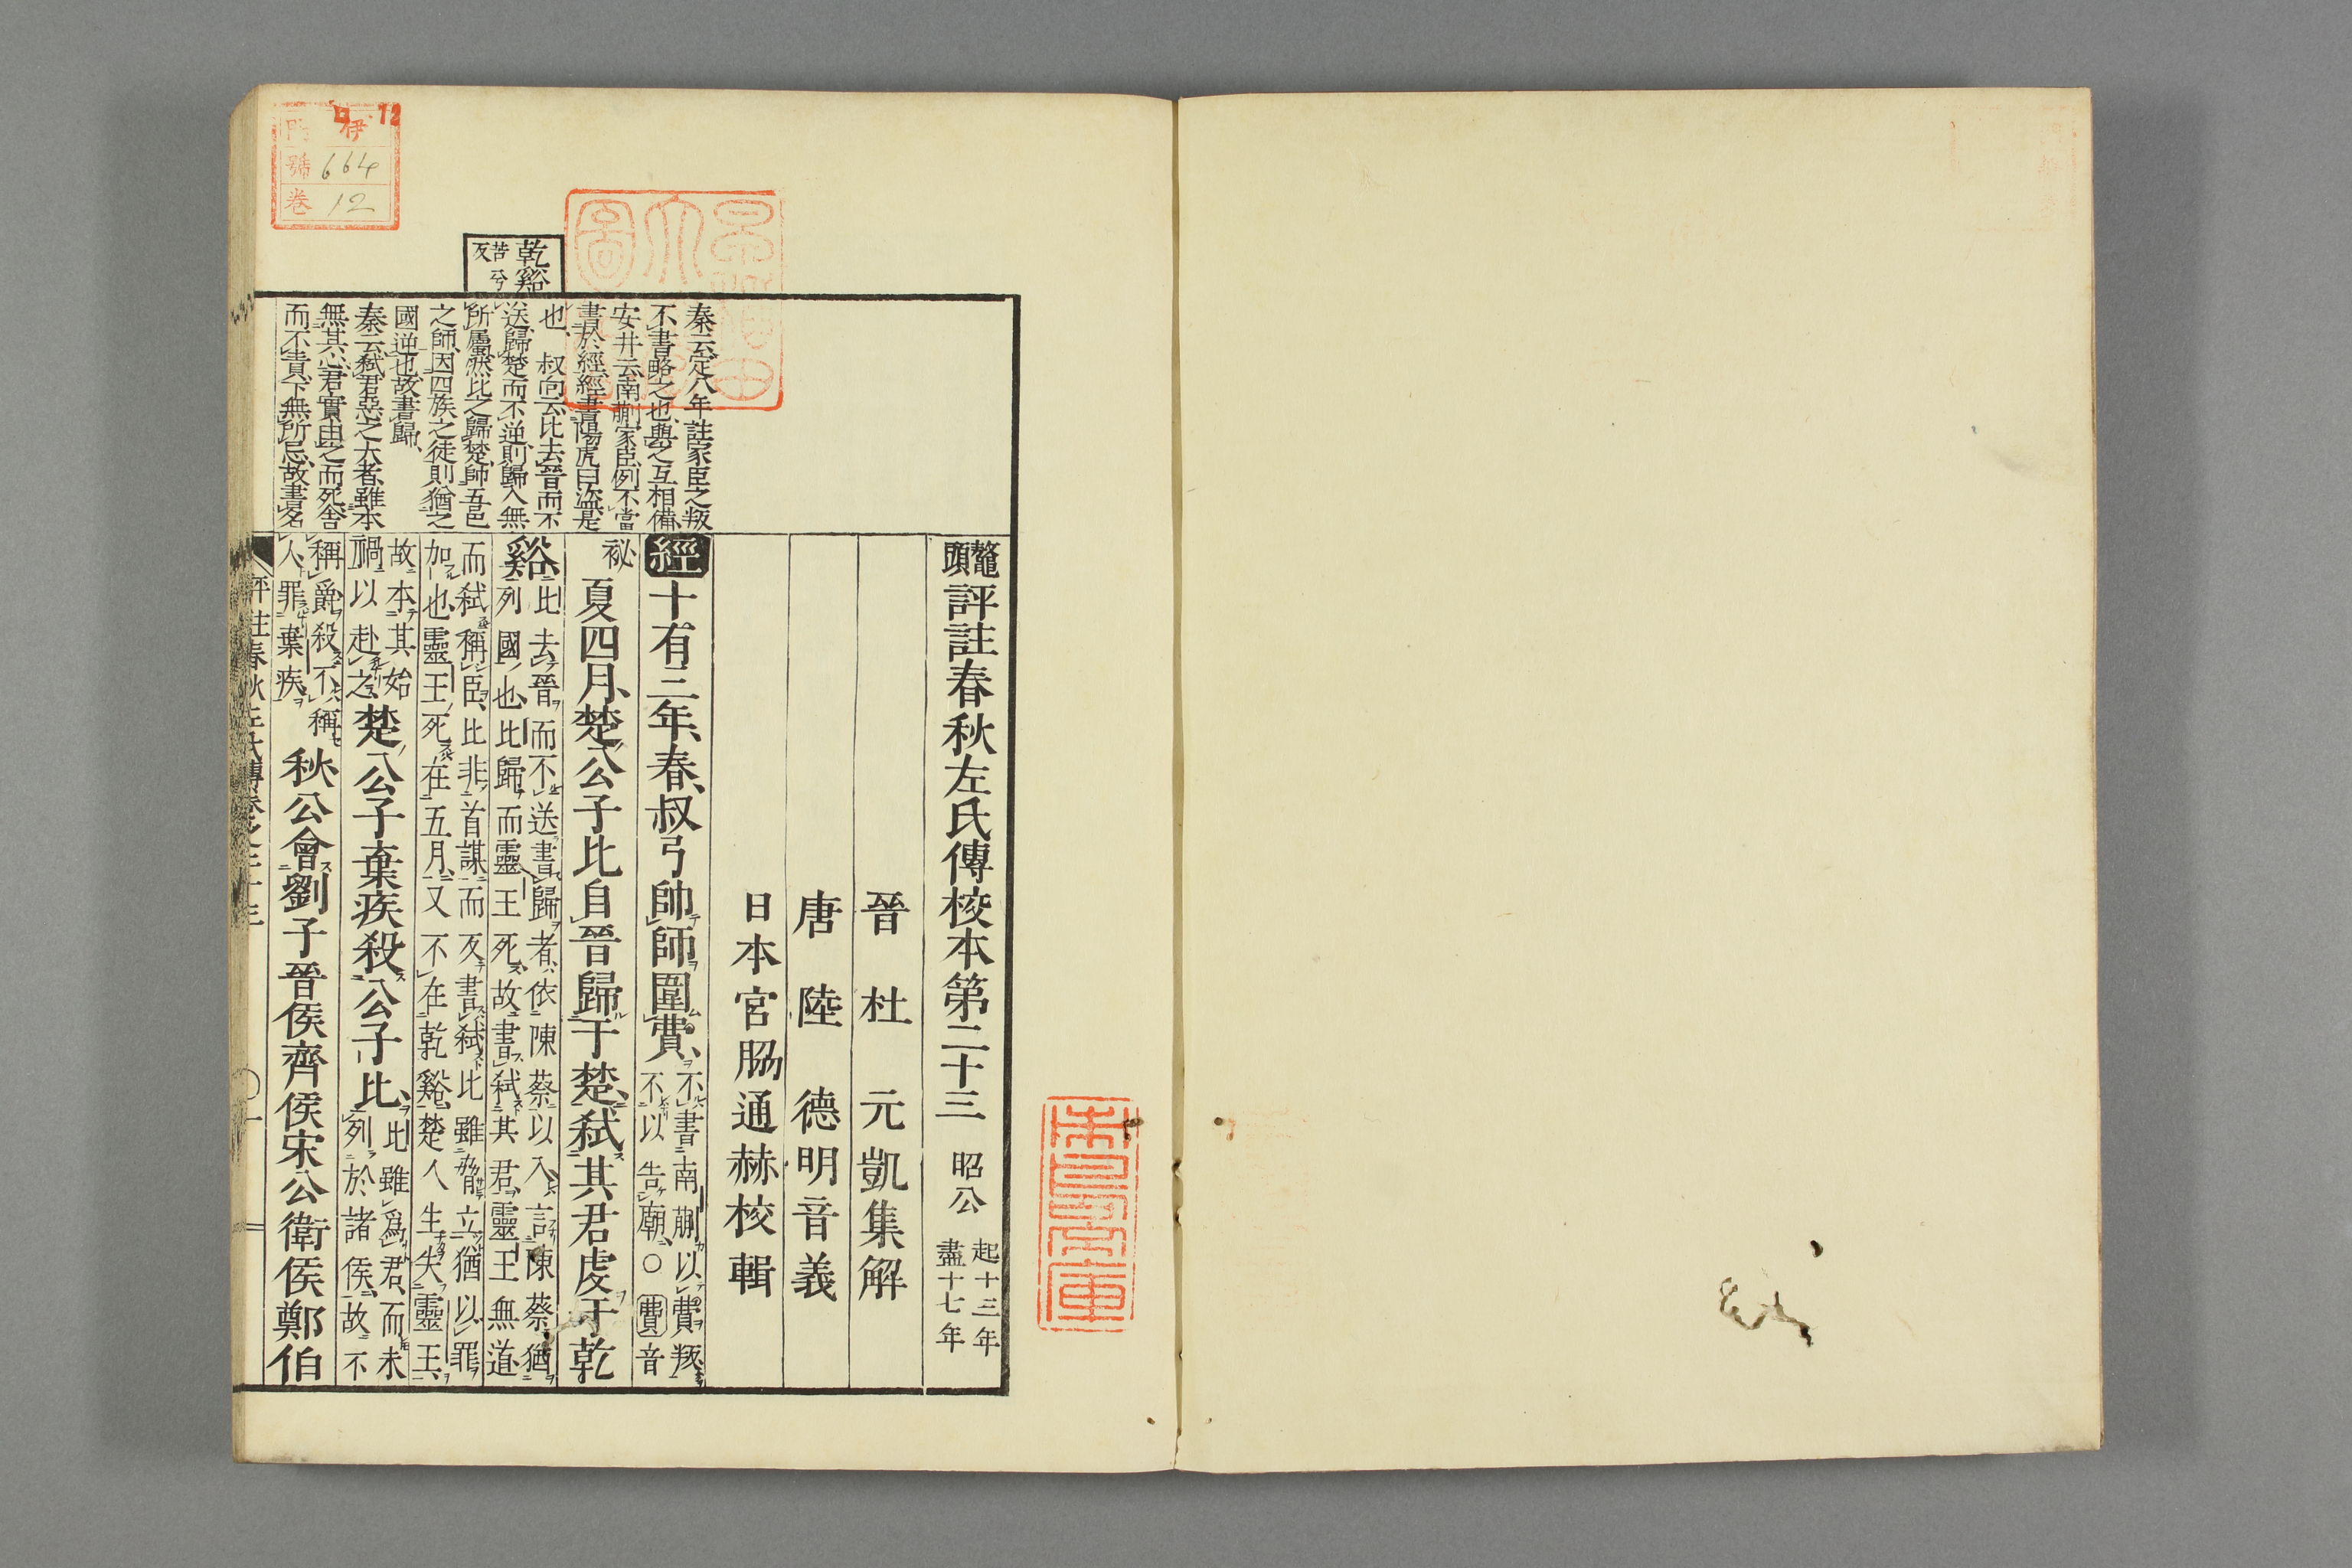 鼇頭評註春秋左氏傳校本第二十三 昭公 起十三年盡十七年
晉 杜 元凱集解
唐 陸 德明音義
日本 宮脇通赫校輯
經十有三年、春、叔弓帥師圍費、不書南蒯以費叛、不以告廟、○費音
祕 夏四月、楚公子比自晉歸于楚、弑其君虔于乾
谿、比去晉而不送書歸者、依陳蔡以入、言陳蔡猶列國也、比歸而靈王死、故書弑其君、靈王無道
而弑稱臣、比非首謀而反書弑、比雖脅立、猶以罪加也、靈王死在五月、又不在乾谿、楚人生失靈王、
故本其始禍以赴之、楚公子棄疾殺公子比、比雖爲君、而未列於諸侯、故不
稱爵、殺不稱人、罪棄疾、秋、公會劉子晉侯齊侯宋公衛侯鄭伯
乾谿 苦兮反
秦云、定八年註、家臣之叛
不書、略之也、與之互相備、
安井云、南蒯家臣、例不當
書於經、經書陽虎曰盜、是
也、 叔向云、比去晉而不
送、歸楚而不逆、則歸入無
所屬、然比之歸楚、師吾邑
之師、因四族之徒、則猶之
國逆也、故書歸、
秦云、弑君、惡之大者、雖本
無其心、君實由之而死、舍
而不責、下無所忌、故書名
評註春秋左氏傳卷之二十三 ○ 一
伊
門
號 664
卷 12
12